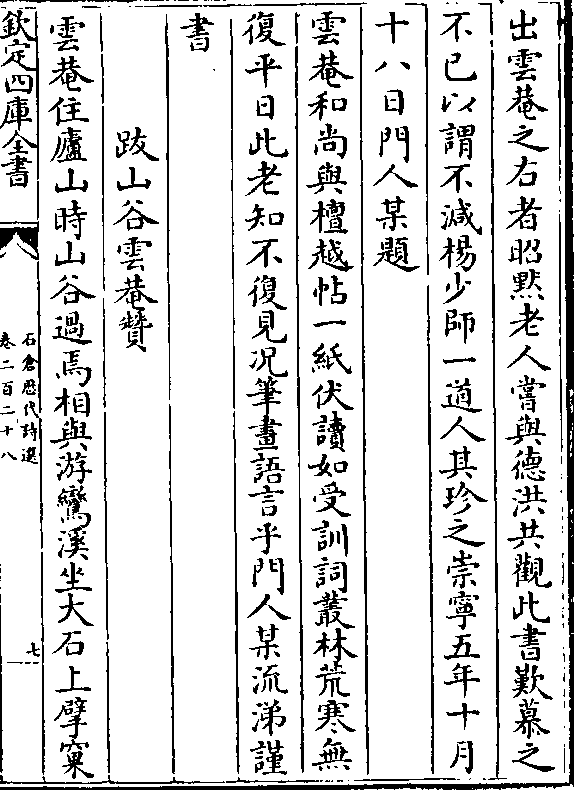 出雲菴之右者昭黙老人嘗與德洪共觀此書歎慕之
不已以謂不減楊少師一道人其珍之崇寧五年十月
十八日門人某題
雲菴和尚與檀越帖一紙伏讀如受訓詞叢林荒寒無
復平日此老知不復見况筆畫語言乎門人某流涕謹
書
跋山谷雲菴贊
雲菴住廬山時山谷過焉相與游鸞溪坐大石上擘窠
欽定四庫全書
石倉歴代詩選
卷二百二十八
七